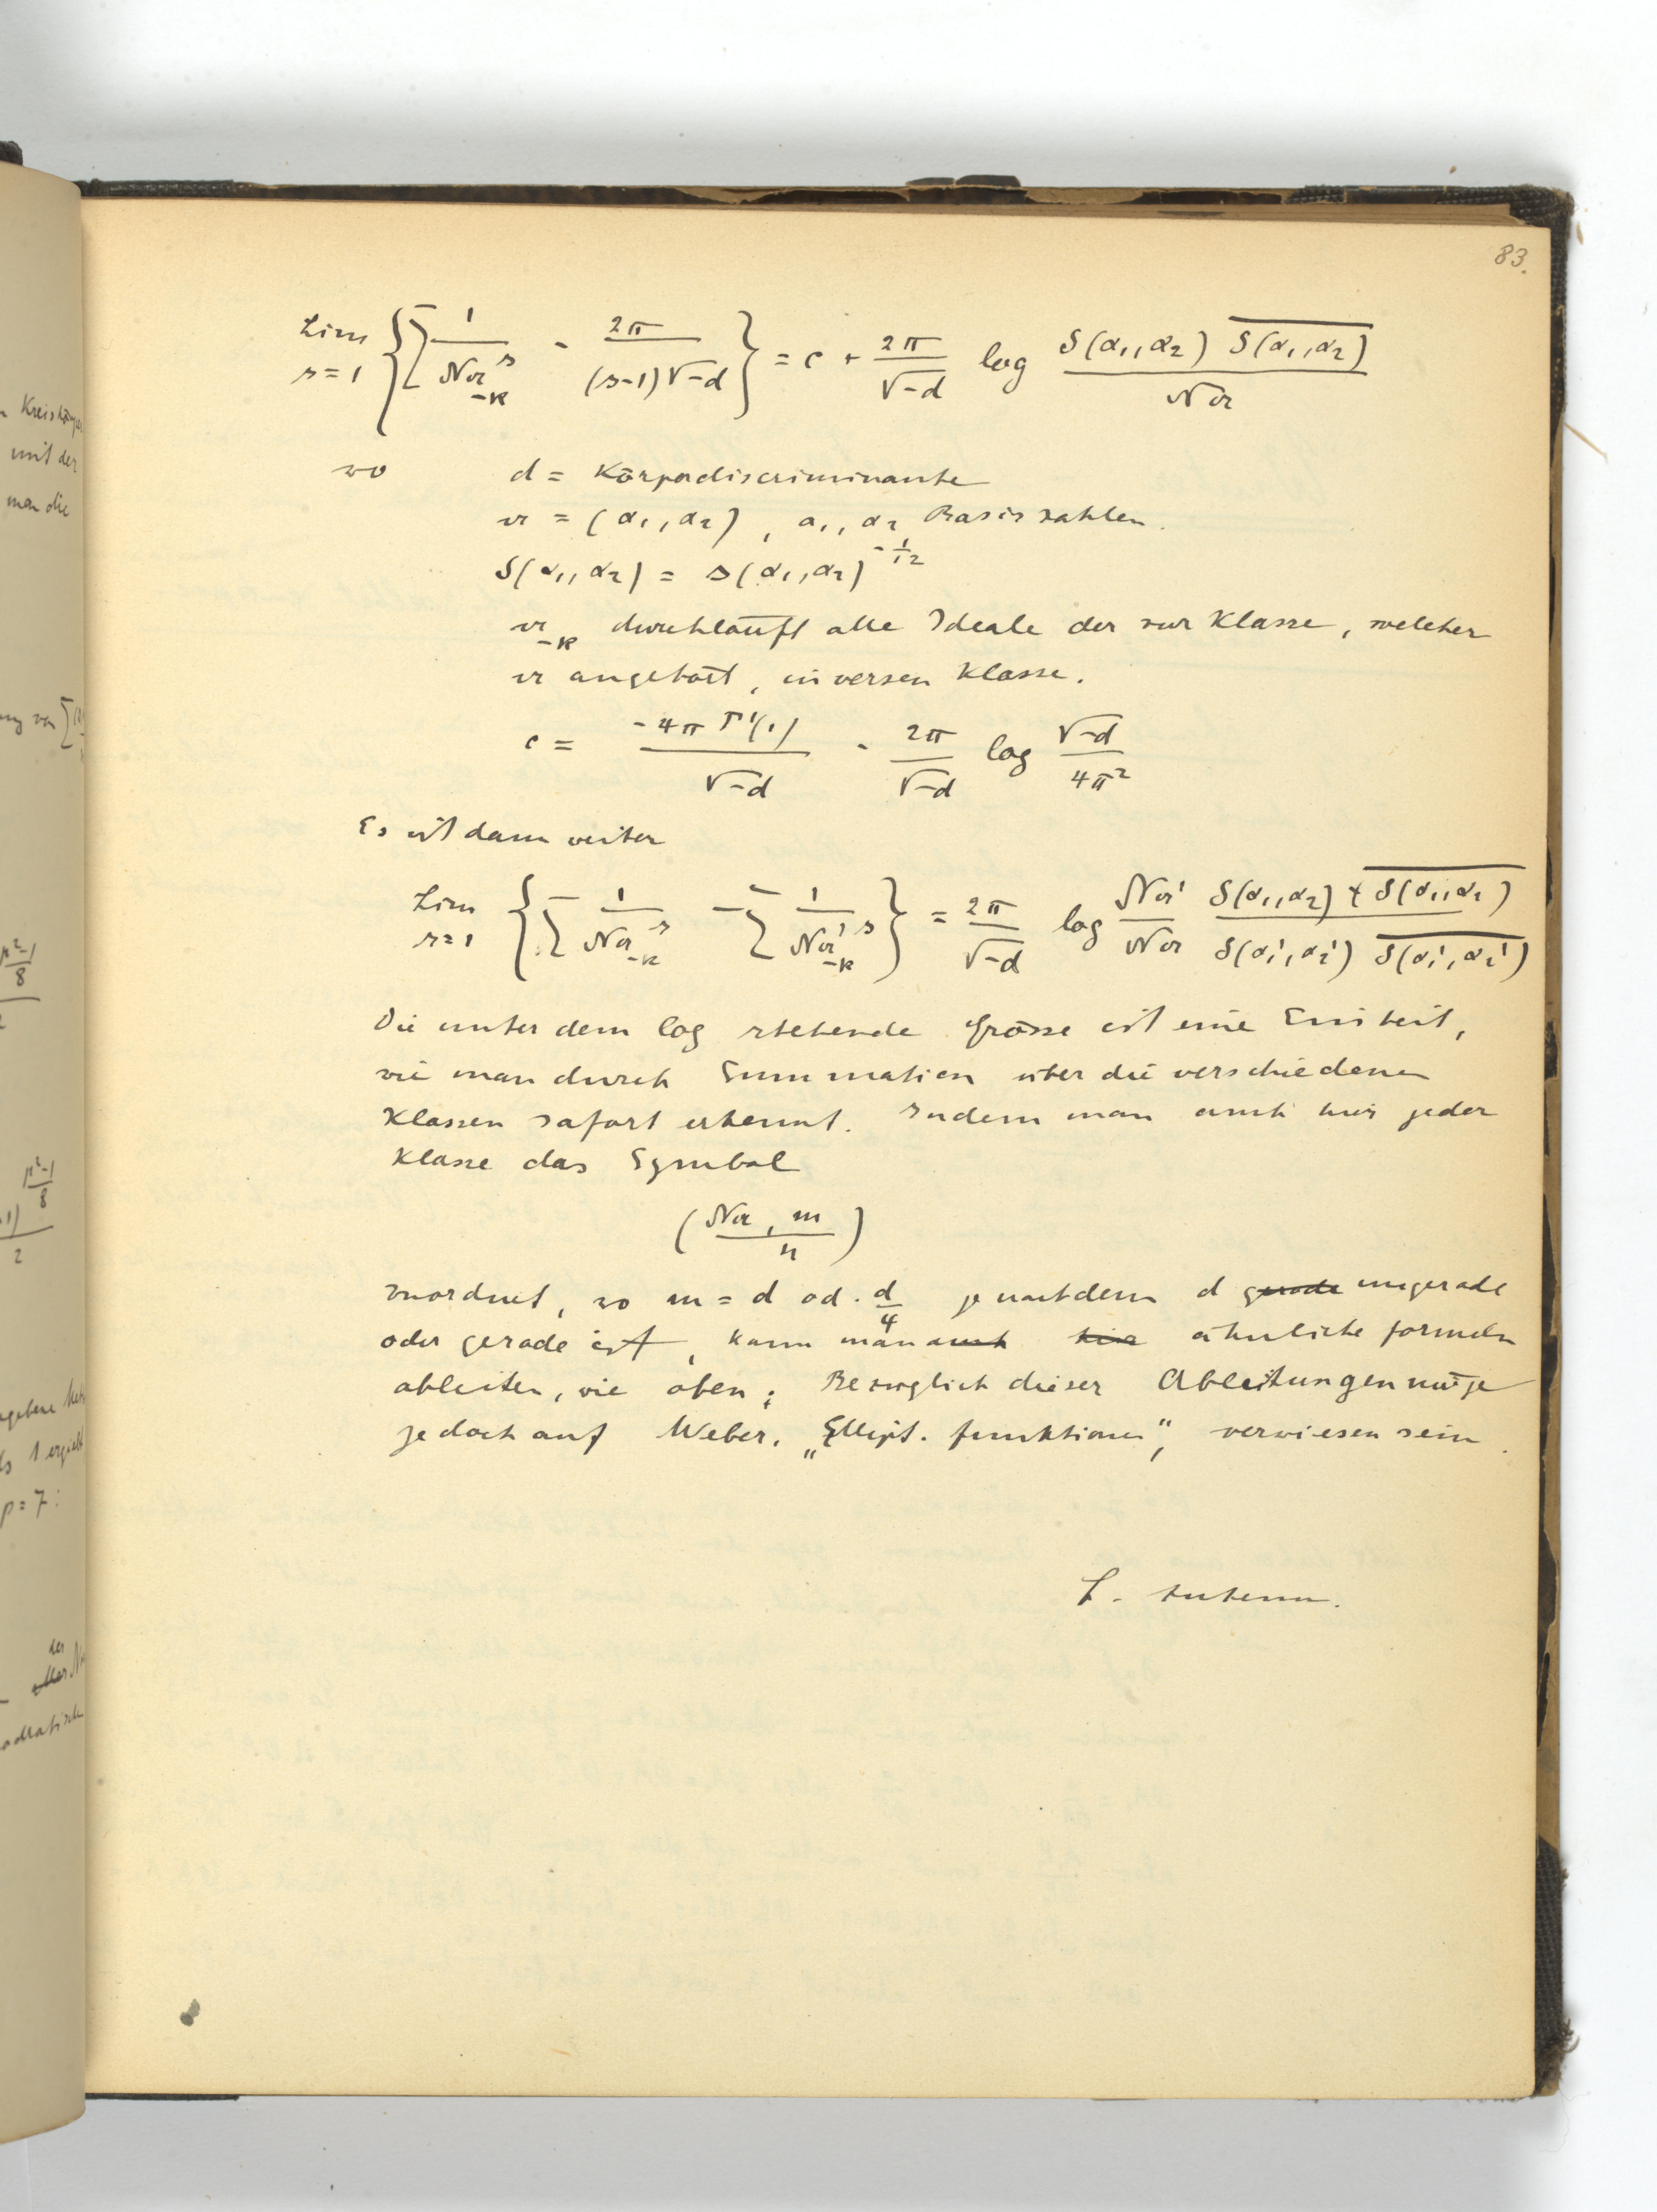 83.
Lim s=1 { ∑ 1/N𝔞₋ₖˢ - 2π/((s-1)√-d) } = c + 2π/√-d log S(α₁,α₂) \overline{S(α₁,α₂)} / N𝔞
wo d = Körperdiscriminante
𝔞 = (α₁, α₂), α₁, α₂ Basiszahlen.
S(α₁, α₂) = s(α₁, α₂)^{-1/12}
𝔞₋ₖ durchläuft alle Ideale der zur Klasse, welcher
𝔞 angehört, inversen Klasse.
c = -4πΓ'(1)/√-d - 2π/√-d log √-d/4π²
Es ist dann weiter
Lim s=1 { ∑ 1/N𝔞₋ₖˢ - ∑ 1/N𝔞'₋ₖˢ } = 2π/√-d log N𝔞'/N𝔞 S(α₁,α₂) \overline{S(α₁,α₂)} / S(α₁',α₂') \overline{S(α₁',α₂')}
Die unter dem log stehende Grösse ist eine Einheit,
wie man durch Summation über die verschiedenen
Klassen sofort erkennt. Indem man auch hier jeder
Klasse das Symbol
(N𝔞, m / n)
zuordnet, wo m = d od. d/4 je nachdem d gerade ungerade
oder gerade ist, kann man auch hier ähnliche Formeln
ableiten, wie oben; Bezüglich dieser Ableitungen möge
jedoch auf Weber, „Ellipt. Funktionen“, verwiesen sein.
Kreiskörper
mit der
man die
μ²-1/8
μ²-1/8
2
1 ergiebt
p = 7:
der